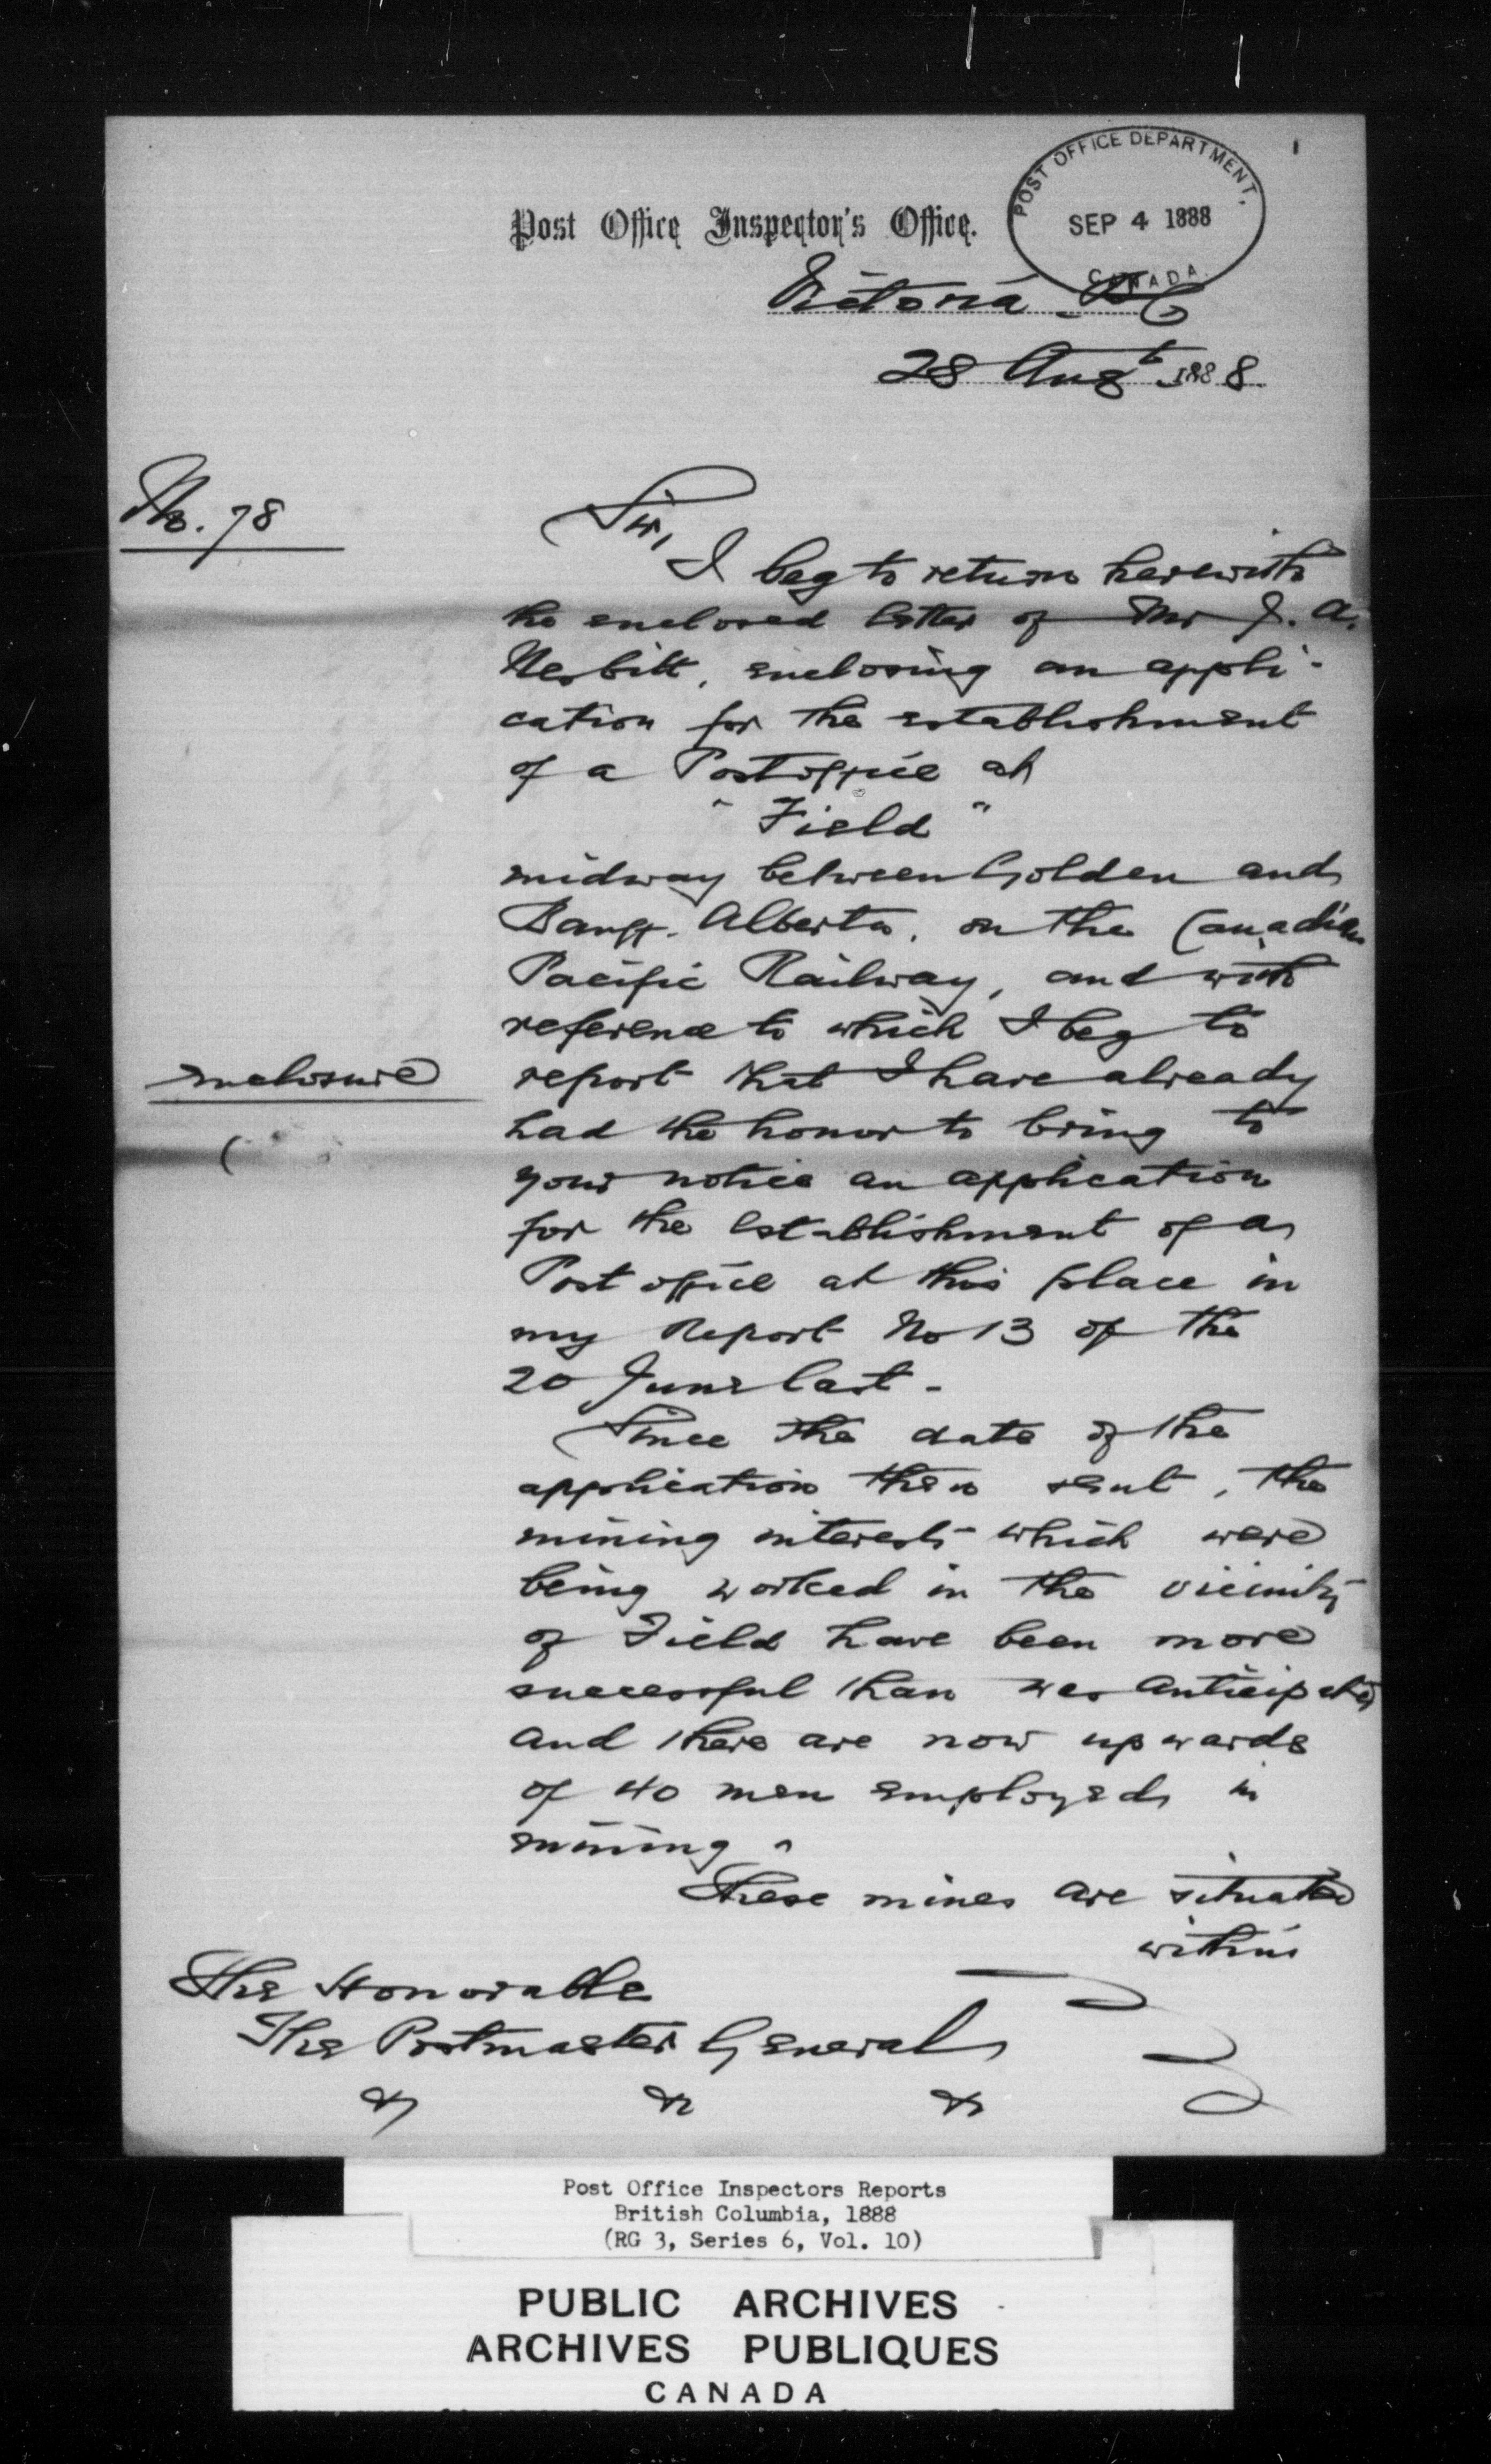 POST OFFICE DEPARTMENT,
SEP 4 1888
CANADA
Post Office Inspector's Office.
Victoria - BC
28 Augt 1888.
No. 78
Sir,
I beg to return herewith
the enclosed letter of Mr J. A.
Nesbitt, enclosing an appli-
cation for the establishment
of a Postoffice at
"Field"
midway between Golden and
Banff. Alberta, on the Canadian
Pacific Railway, and with
reference to which I beg to
enclosure
report that I have already
had the honor to bring to
your notice an application
for the establishment of a
Post office at this place in
my Report No 13 of the
20 June last -
Since the date of the
application then sent, the
mining interests which were
being worked in the vicinity
of Field have been more
successful than was anticipated
and there are now upwards
of 40 men employed in
mining -
These mines are situated
within
The Honorable
The Postmaster General
&c &c &c
Post Office Inspectors Reports
British Columbia, 1888
(RG 3, Series 6, Vol. 10)
PUBLIC ARCHIVES
ARCHIVES PUBLIQUES
CANADA